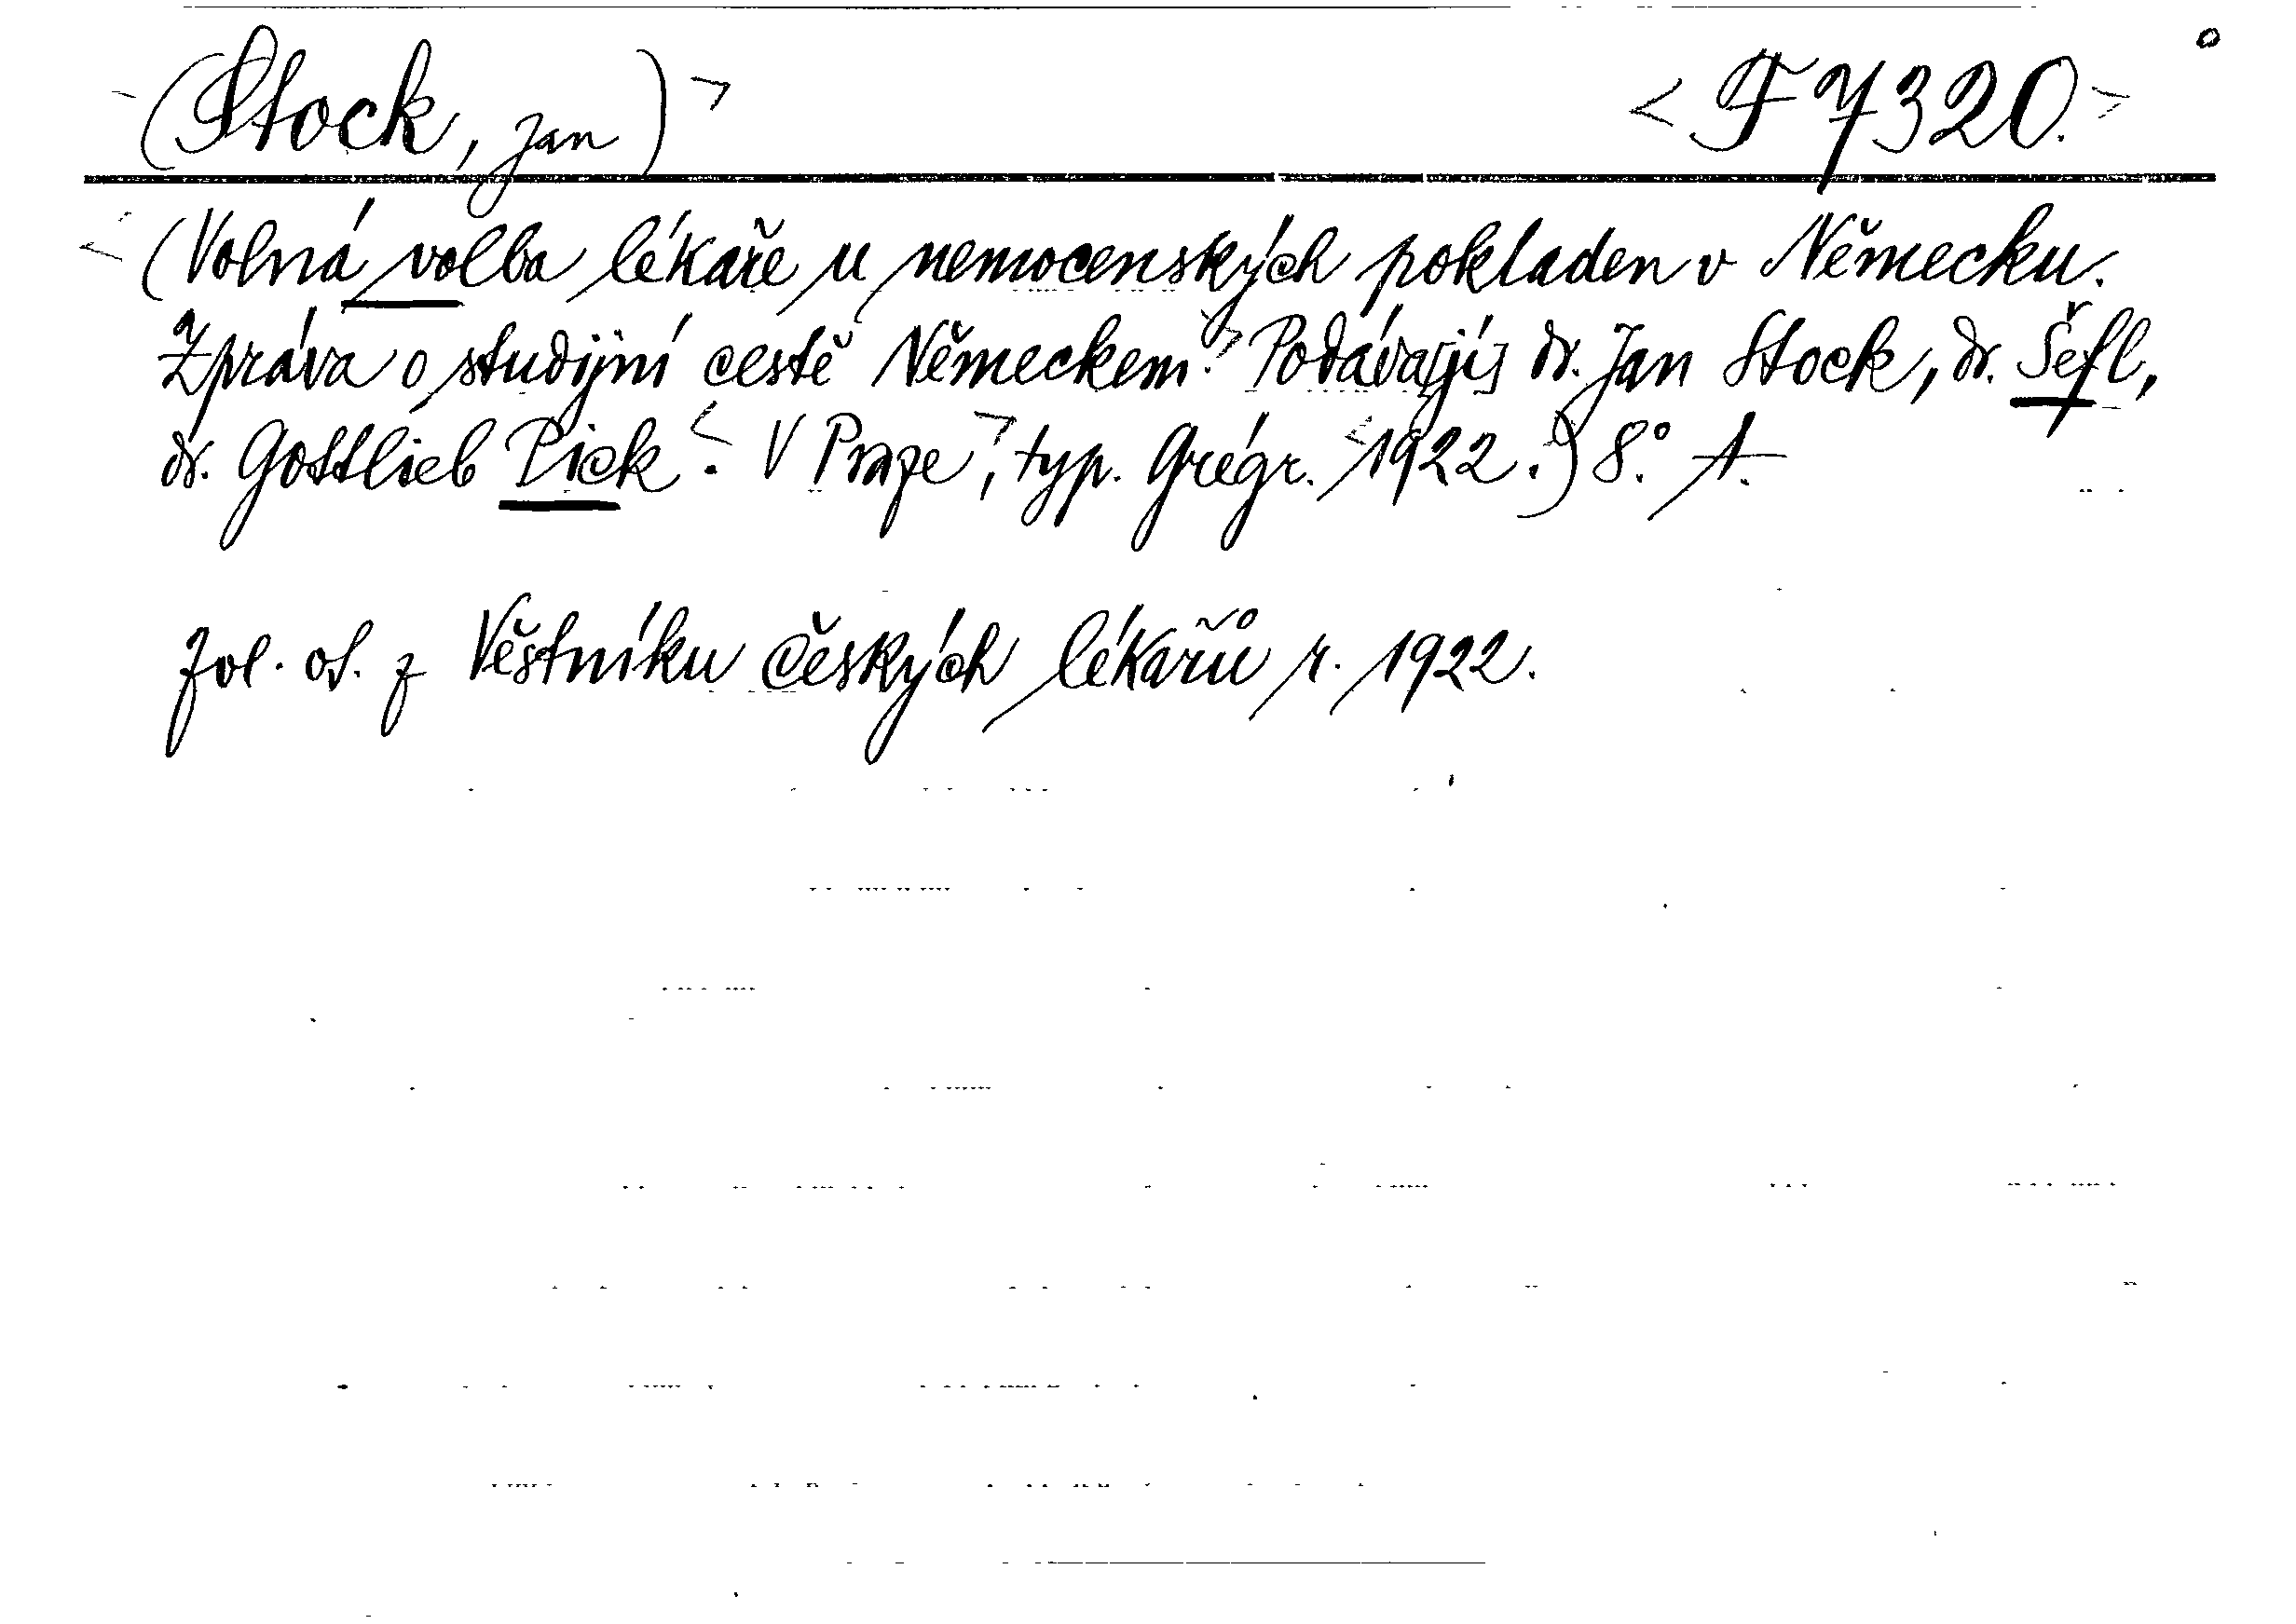 (Stock, Jan) F 7320.
(Volná volba lékaře u nemocenských pokladen v Německu.
Zpráva o studijní cestě Německem. Podáva[jí] dr. Jan Stock, dr. Šefl,
dr. Gottlieb Pick. V Praze, typ. Grégr. 1922.) 8.° A.
Zvl. ot. z Věstníku českých lékařů r. 1922.